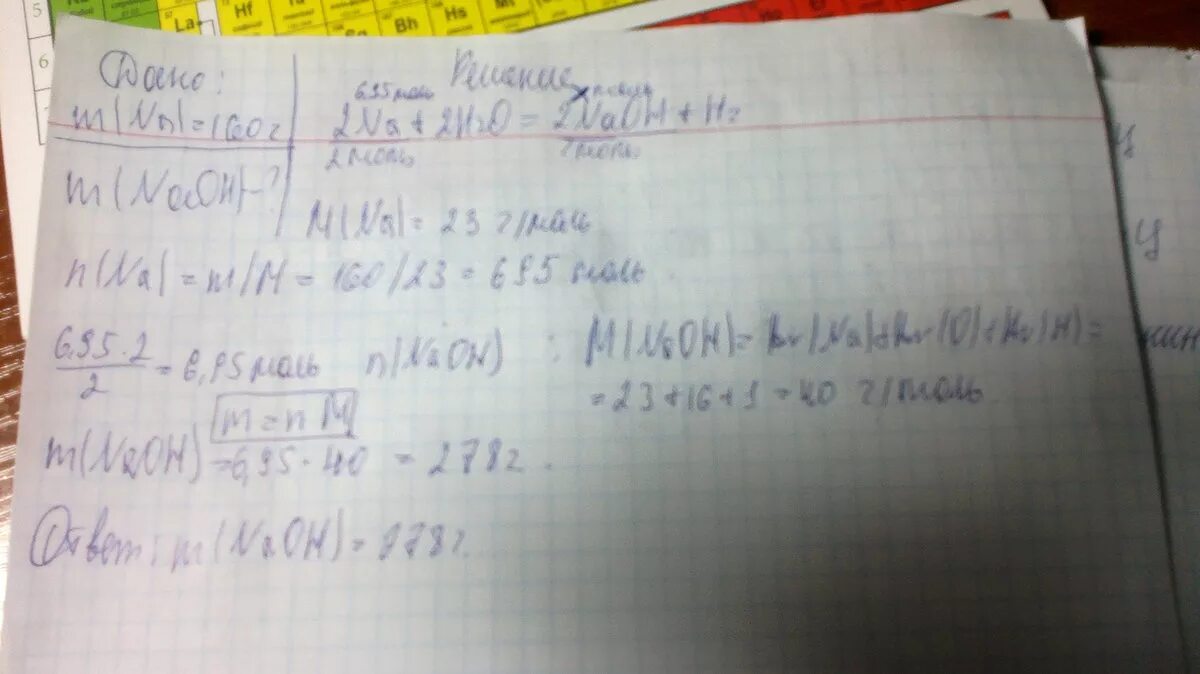 5
Hf
La
Bh
Hs
Mt
6
Дано:
Решение
m(Na)=160г
6,95моль
x моль
2Na + 2H2O = 2NaOH + H2
2моль
2моль
m(NaOH)-?
M(Na)= 23 г/моль
n(Na) = m/M = 160/23 = 6,95 моль
6,95·2/2 = 6,95моль n(NaOH)
: M(NaOH)= Ar(Na)+Ar(O)+Ar(H)=
=23+16+1=40 г/моль
m=n M
m(NaOH) =6,95·40 = 278г.
Ответ: m(NaOH)=278г.
ц
ц